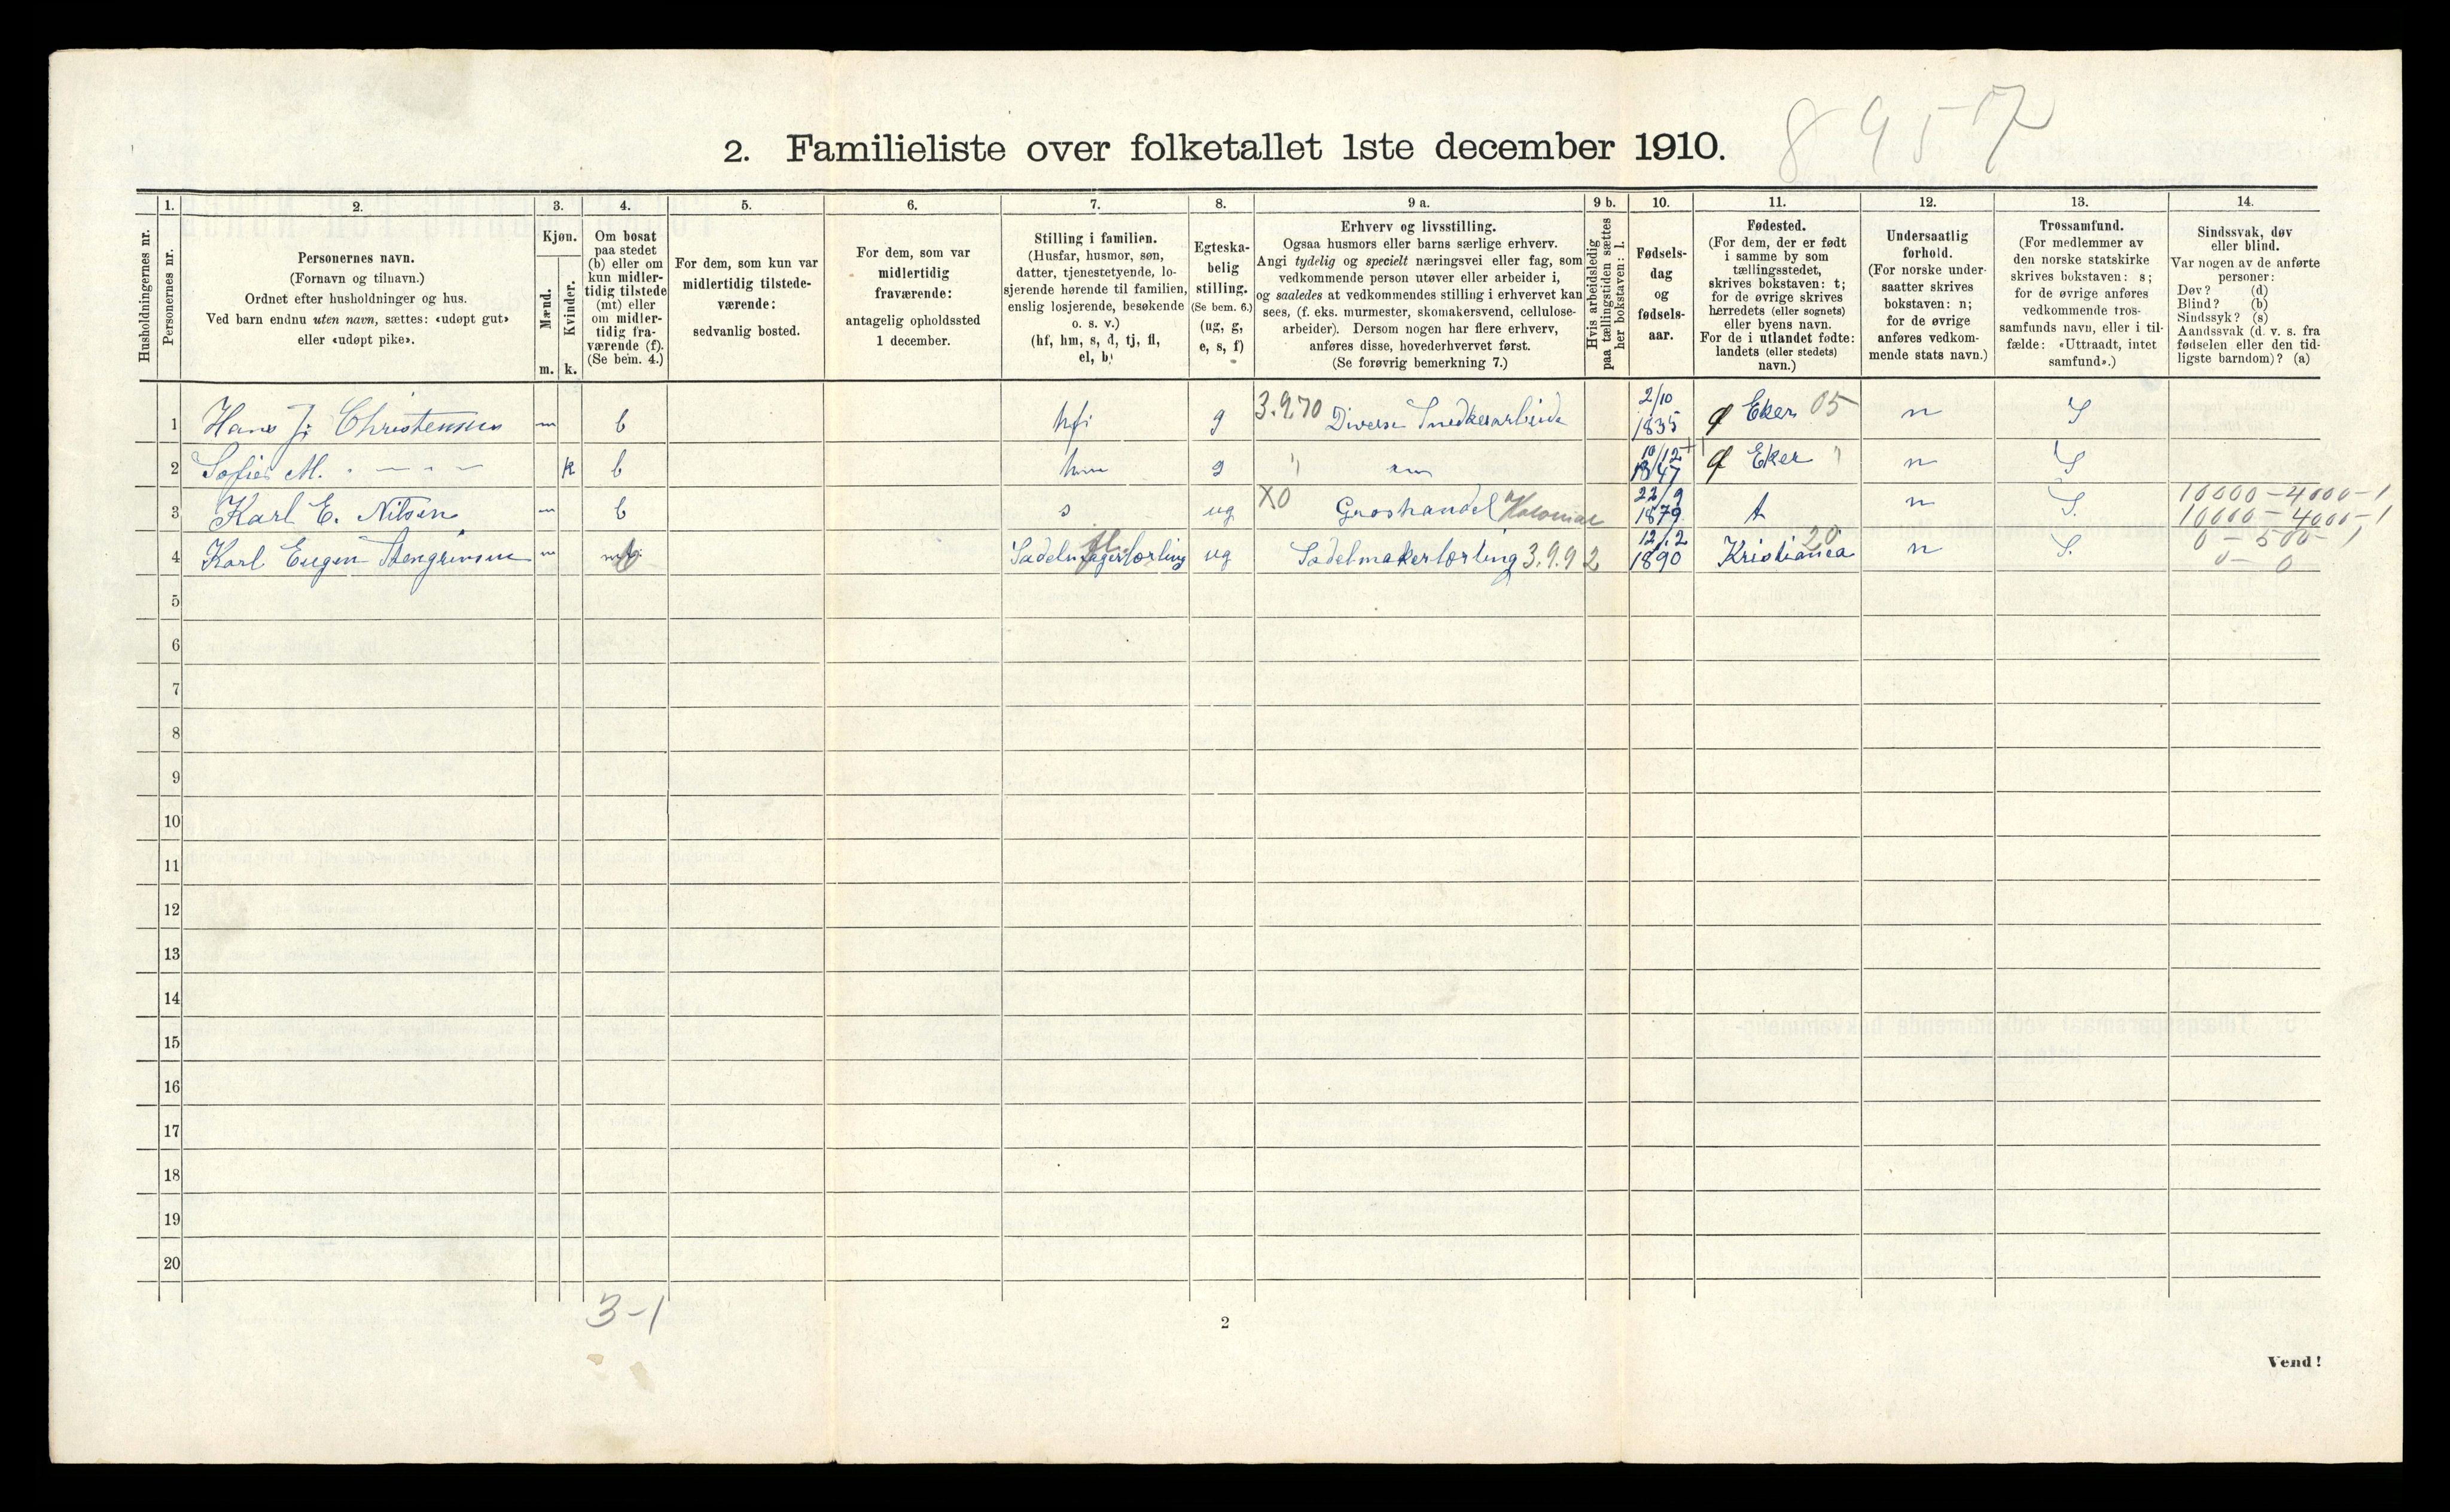 8957
2. Familieliste over folketallet 1ste december 1910.
Husholdningernes nr.
1. Personernes nr.
2. Personernes navn. (Fornavn og tilnavn.) Ordnet efter husholdninger og hus. Ved barn endnu uten navn, sættes: «udøpt gut» eller «udøpt pike».
3. Kjøn. Mænd. m. Kvinder. k.
4. Om bosat paa stedet (b) eller om kun midlertidig tilstede (mt) eller om midlertidig fraværende (f). (Se bem. 4.)
5. For dem, som kun var midlertidig tilstedeværende: sedvanlig bosted.
6. For dem, som var midlertidig fraværende: antagelig opholdssted 1 december.
7. Stilling i familien. (Husfar, husmor, søn, datter, tjenestetyende, losjerende hørende til familien, enslig losjerende, besøkende o. s. v.) (hf, hm, s, d, tj, fl, el, b)
8. Egteskabelig stilling. (Se bem. 6.) (ug, g, e, s, f)
9 a. Erhverv og livsstilling. Ogsaa husmors eller barns særlige erhverv. Angi tydelig og specielt næringsvei eller fag, som vedkommende person utøver eller arbeider i, og saaledes at vedkommendes stilling i erhvervet kan sees, (f. eks. murmester, skomakersvend, cellulosearbeider). Dersom nogen har flere erhverv, anføres disse, hovederhvervet først. (Se forøvrig bemerkning 7.)
9 b. Hvis arbeidsledig paa tællingstiden sættes her bokstaven: l.
10. Fødselsdag og fødselsaar.
11. Fødested. (For dem, der er født i samme by som tællingsstedet, skrives bokstaven: t; for de øvrige skrives herredets (eller sognets) eller byens navn. For de i utlandet fødte: landets (eller stedets) navn.)
12. Undersaatlig forhold. (For norske undersaatter skrives bokstaven: n; for de øvrige anføres vedkommende stats navn.)
13. Trossamfund. (For medlemmer av den norske statskirke skrives bokstaven: s; for de øvrige anføres vedkommende trossamfunds navn, eller i tilfælde: «Uttraadt, intet samfund».)
14. Sindssvak, døv eller blind. Var nogen av de anførte personer: Døv? (d) Blind? (b) Sindssyk? (s) Aandssvak (d. v. s. fra fødselen eller den tidligste barndom)? (a)
1 Hans J. Christensen m b hf g 3.9.70 Diverse Snedkerarbeide 2/10 1835 Ø Eker 05 n S
2 Sofie M. " — " — k b hm g " 10/12 1847 Ø Eker " n S
3 Karl E. Nilsen m b s ug X0 Groshandel Kolonial 22/9 1879 t n S. 10000-4000-1 10000-4000-1
4 Karl Eugen m b fl. Sadelmagerlærling ug Sadelmakerlærling 3.9.92 12/12 1890 Kristiania 20 n S. 0-500-1 0-0
5
6
7
8
9
10
11
12
13
14
15
16
17
18
19
20
3-1
2
Vend!